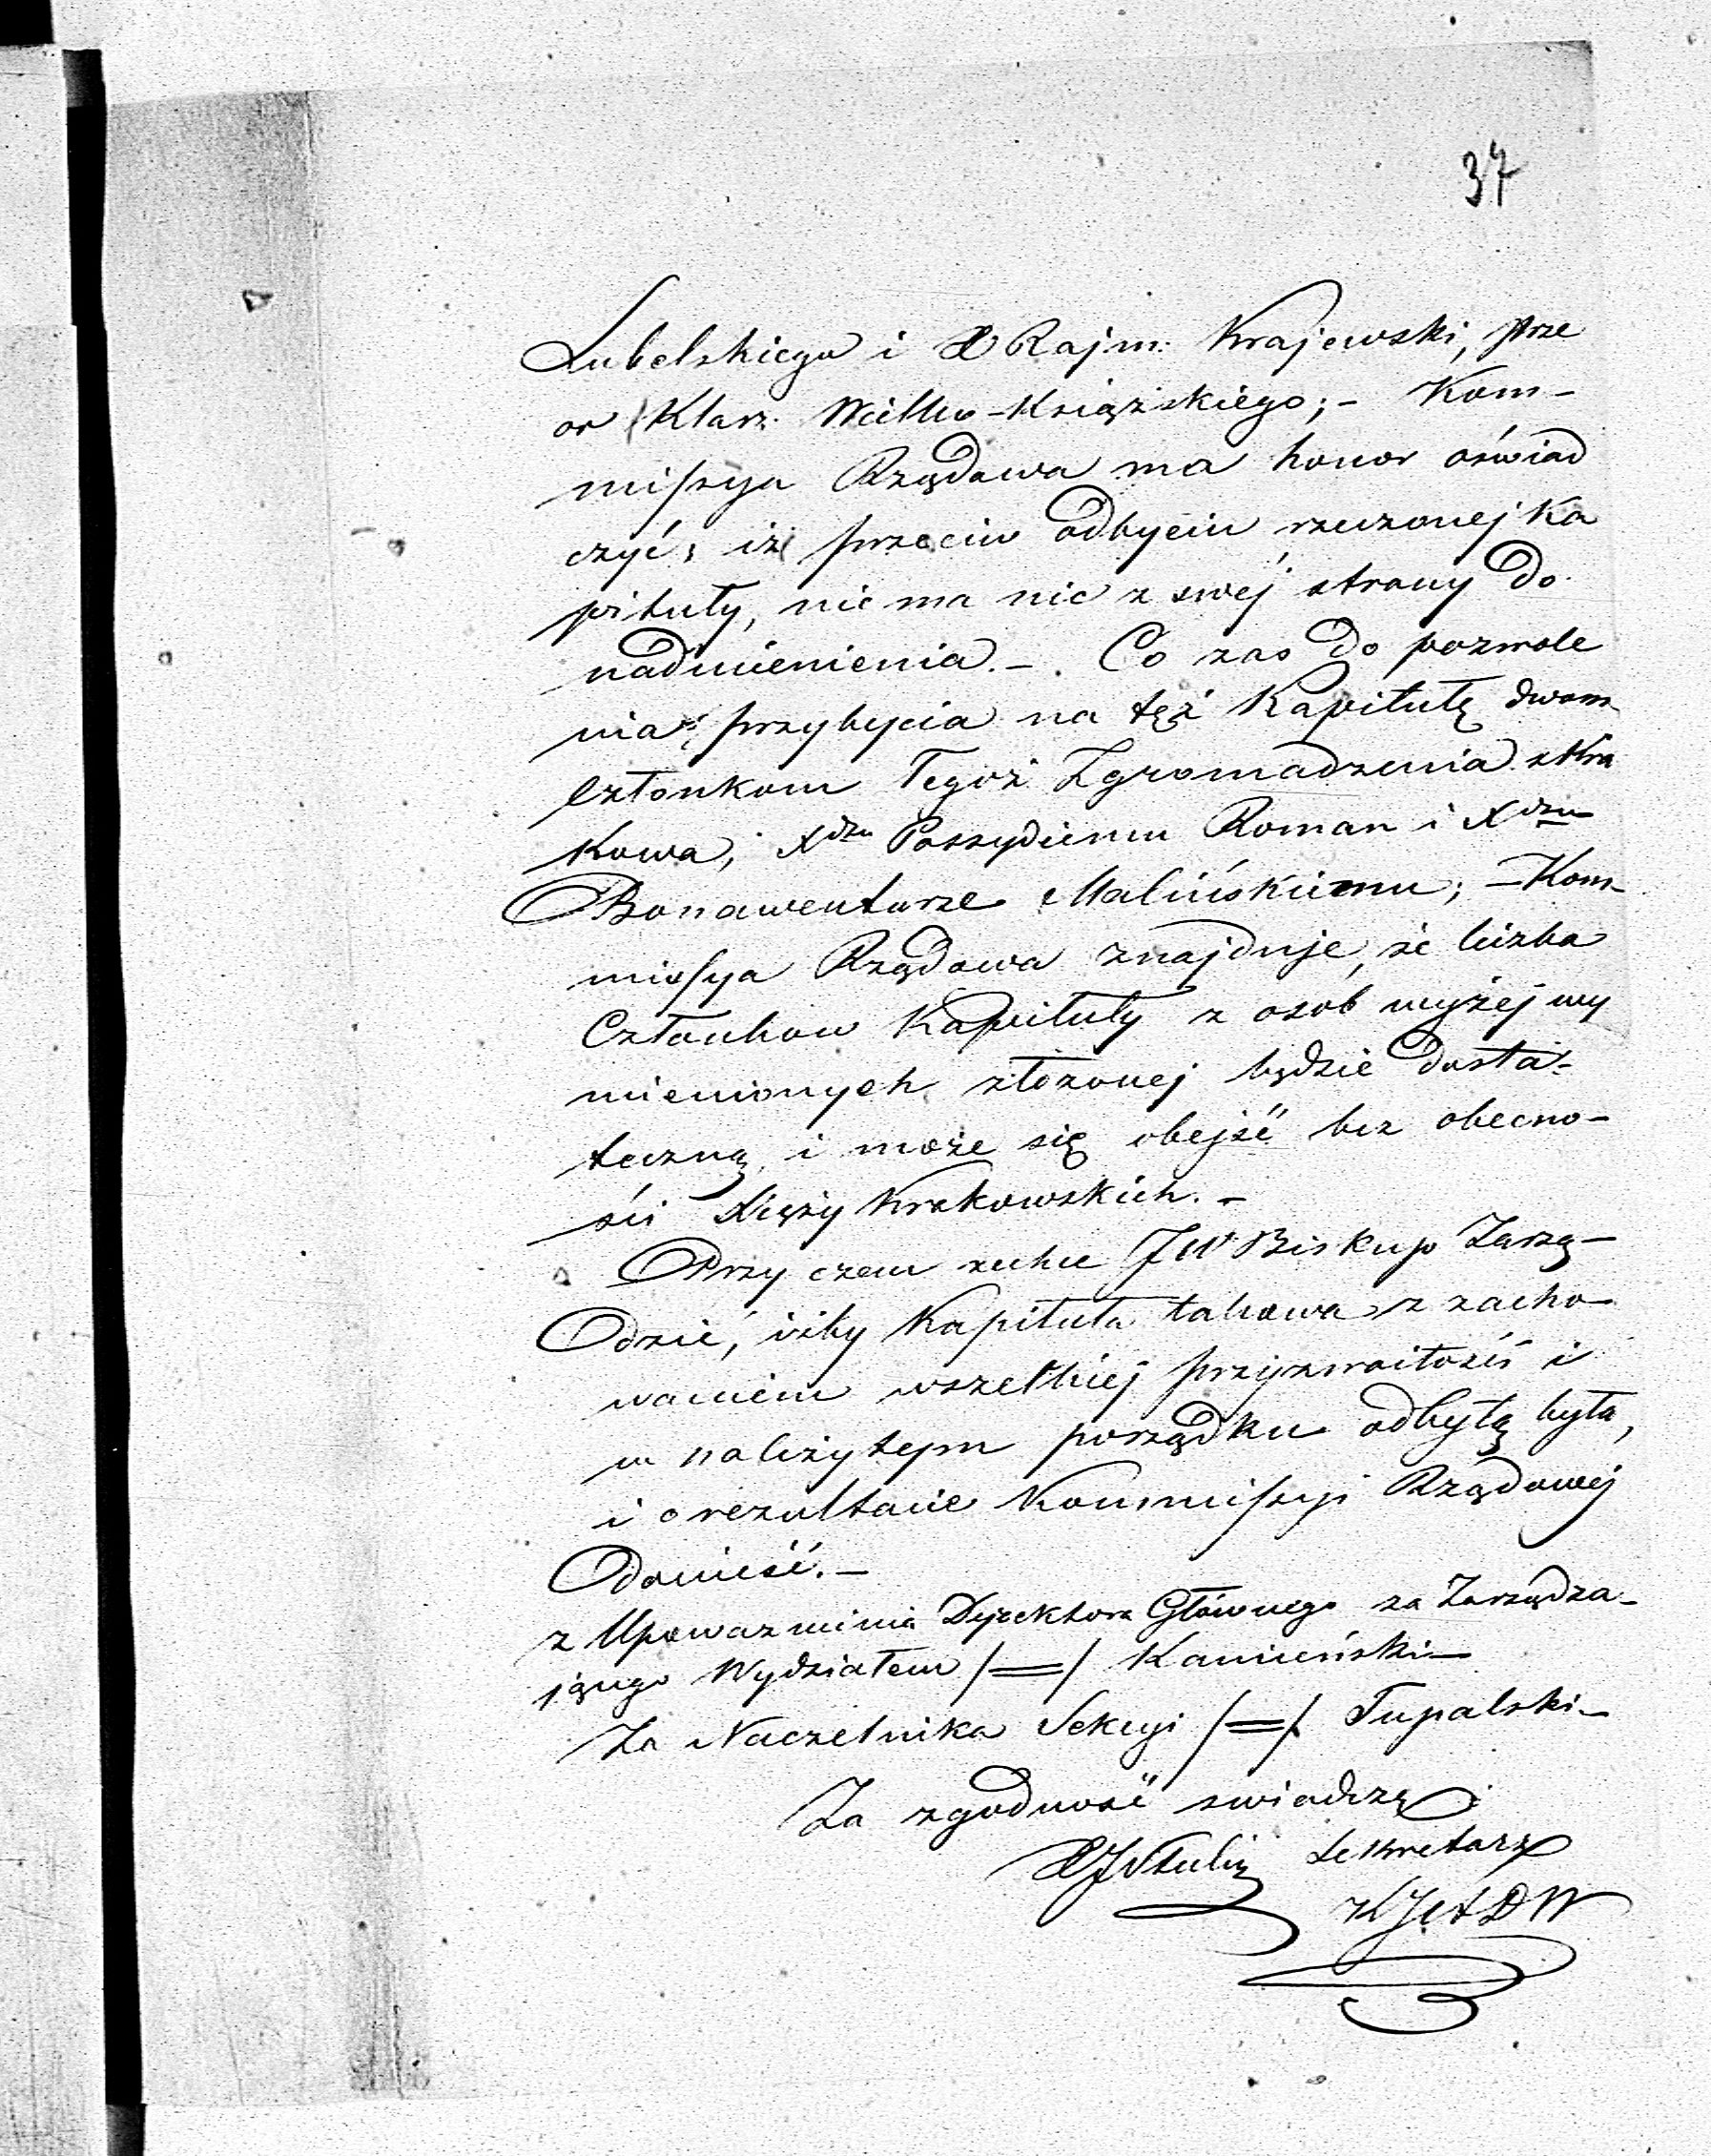 37
Lubelskiego i X Rajm: Krajewski, prze
or Klasz. Wielko-Książskiego; – Kom-
missya Rządowa ma honor oświad
czyć, iż przeciw odbyciu rzeczonej Ka
pituły, nie ma nic z swéj strony do
nadmienienia. – Co zas do pozwole
nia, przybycia na tęż Kapitułę dwom
członkom Tegoż Zgromadzenia z Kra
kowa, Xdzu Possydiemu Roman i Xdzu
Bonawenturze Malińskiemu; – Kom-
missya Rządowa znajduje, że liczba
Członkow Kapituły z osob wyżej wy
mienionych złożonej będzie dosta-
teczną, i może się obejść bez obecno-
ści Xięży Krakowskich. –
Przy czem zechce JW Biskup Zarzą-
dzić, iżby Kapituła takowa z zacho-
waniem wszelkiej przyzwoitości i
w należytym porządku odbytą była,
i o rezultacie Kommissyi Rządowéj
donieść. –
z Upoważnienia Dyrektora Głównego za Zarządza-
jącego Wydziałem /=/ Kamieński –
Za Naczelnika Sekcyi /=/ Tupalski –
Za zgodność swiadczę
Sekretarz